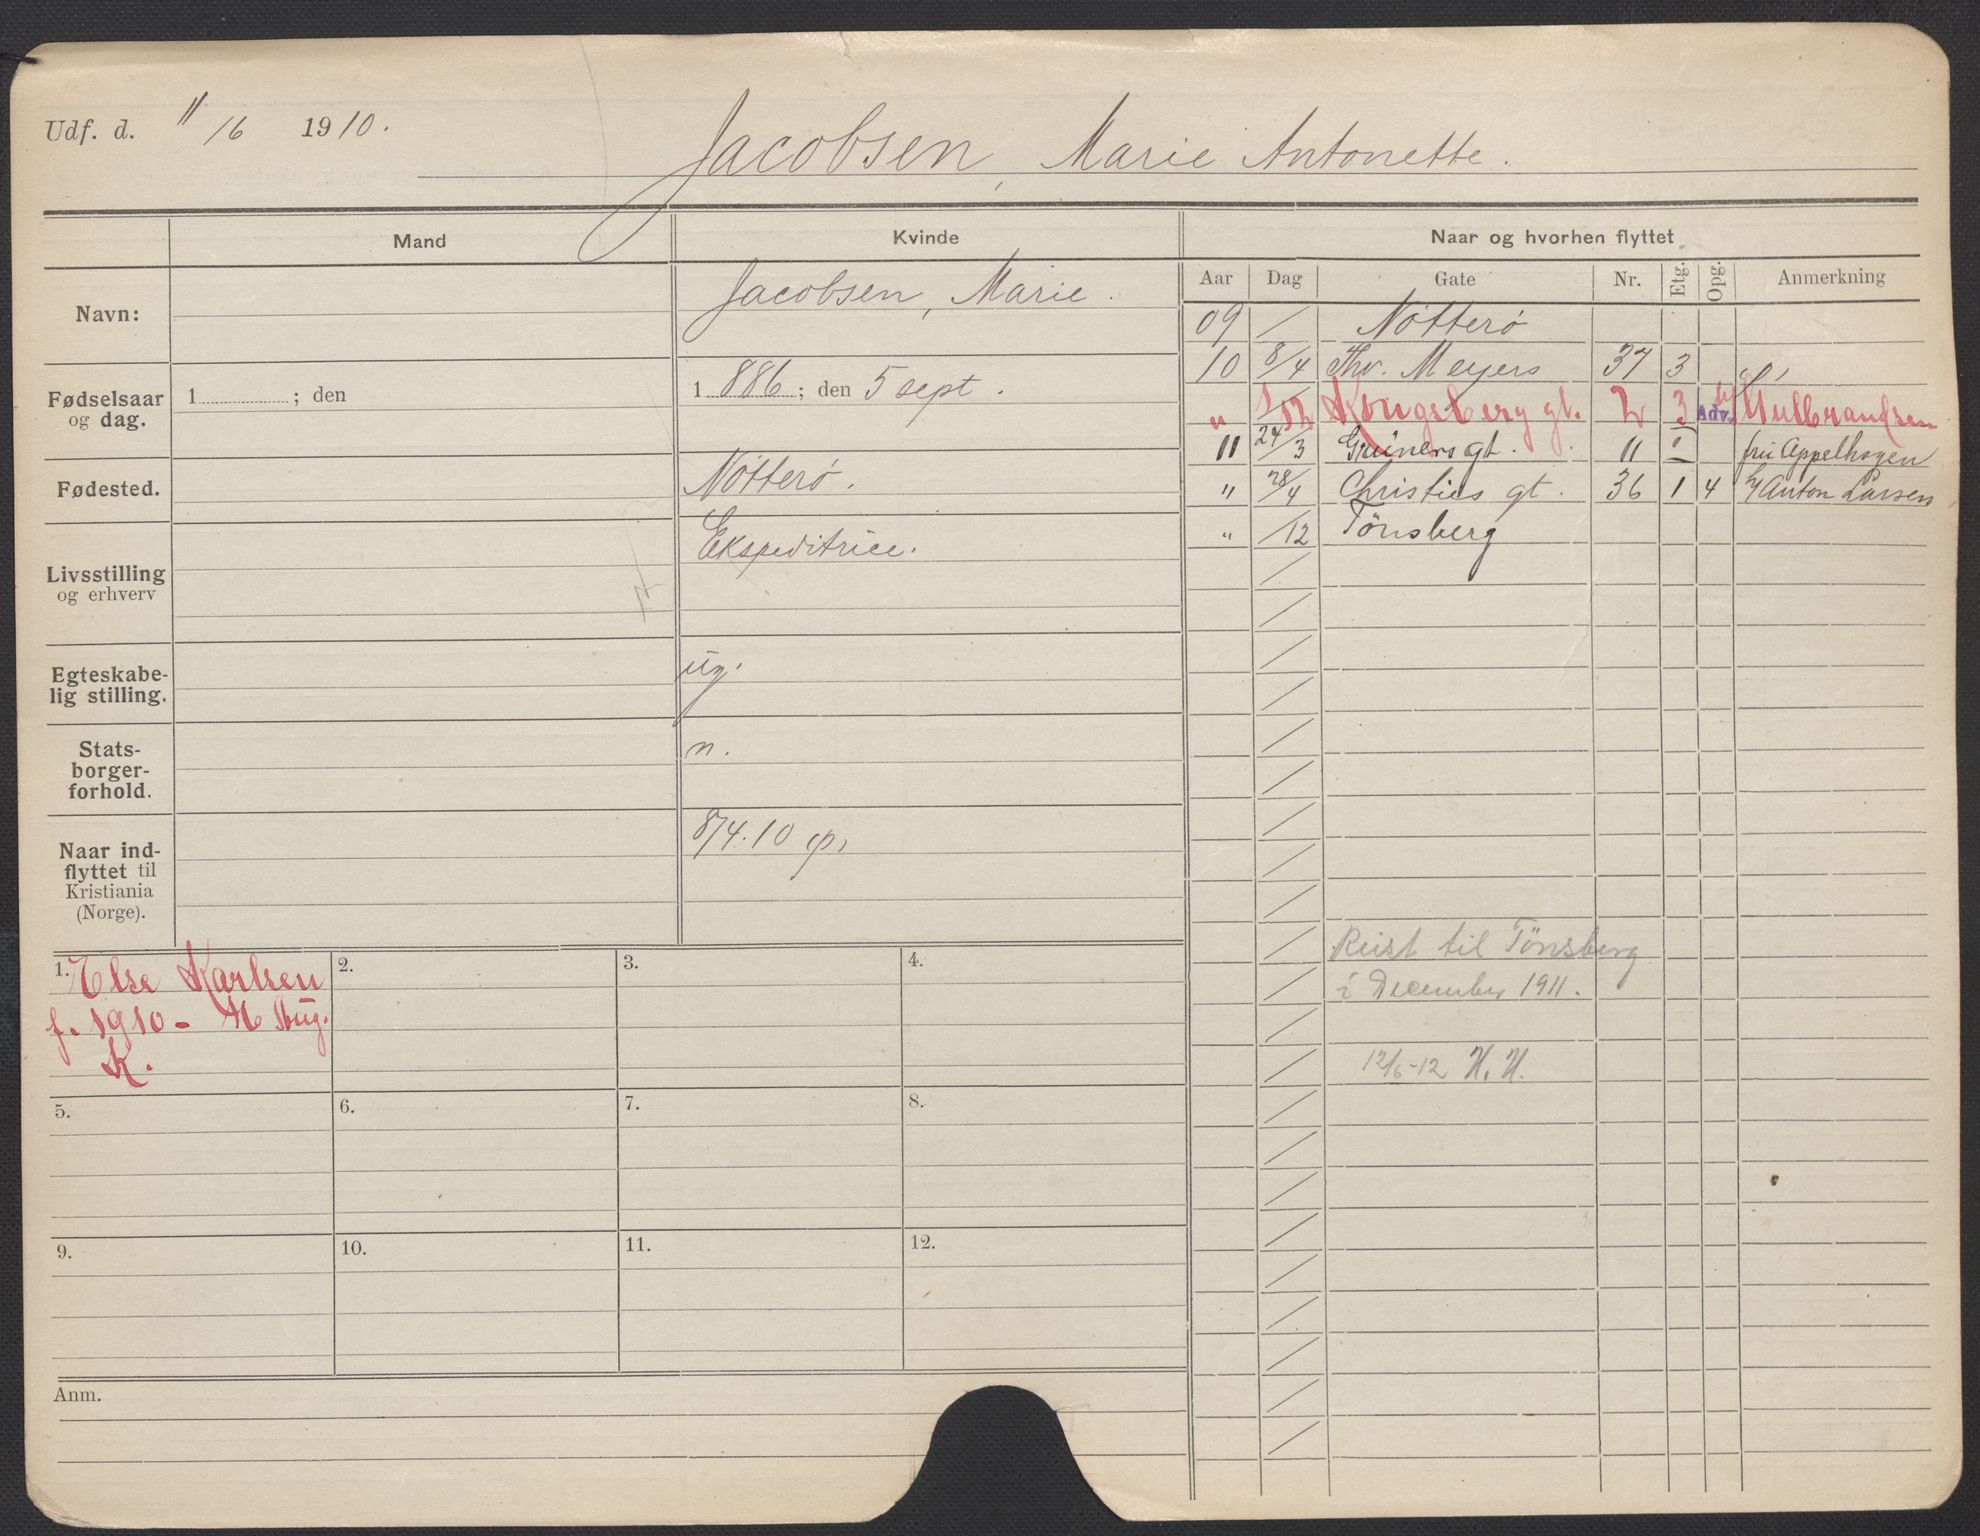 Udf. d. 11/16 1910.
Jacobsen, Marie Antonette.
Mand
Kvinde
Naar og hvorhen flyttet
Aar Dag Gate Nr. Etg. Opg. Anmerkning
Navn:
Jacobsen, Marie.
Fødselsaar
og dag.
1 ; den
1 886 ; den 5 sept.
Fødested.
Nötterö.
Livsstilling
og erhverv
Ekspeditrice.
Egteskabe-
lig stilling.
ug.
Stats-
borger-
forhold.
n.
Naar ind-
flyttet til
Kristiania
(Norge).
8/4.10
09 / Nötterö
10 8/4 Thv. Meyers 37 3
" 1/12 Kongsberg gt. 2 3 Adv. Gulbrandsen
11 24/3 Grüners gt. 11 fru Appelhagen
" 28/4 Christies gt. 36 1 4 Anton Larsen
" /12 Tönsberg
Reist til Tönsberg
i December 1911.
12/6-12 H. H.
1. Else Karlsen
f. 1910 - Aug.
K.
2.
3.
4.
5.
6.
7.
8.
9.
10.
11.
12.
Anm.